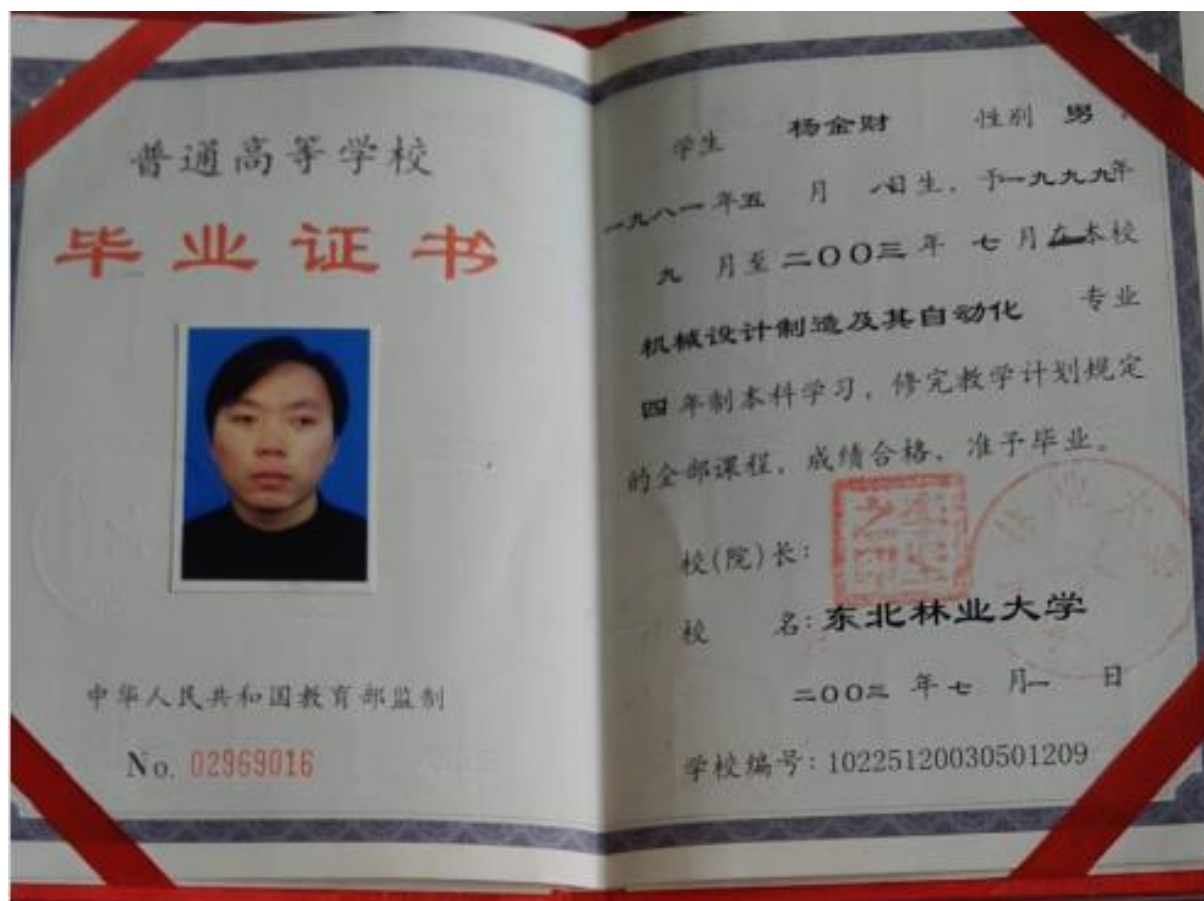 普通高等学校
毕业证书
中华人民共和国教育部监制
No. 02969016
学生 杨金财 性别 男
一九八一年五 月 八日生，于一九九九年
九 月至二〇〇三年 七 月在本校
机械设计制造及其自动化 专业
四 年制本科学习，修完教学计划规定
的全部课程，成绩合格，准予毕业。
校(院)长：
校 名：东北林业大学
二〇〇三 年 七 月一 日
学校编号：10225120030501209